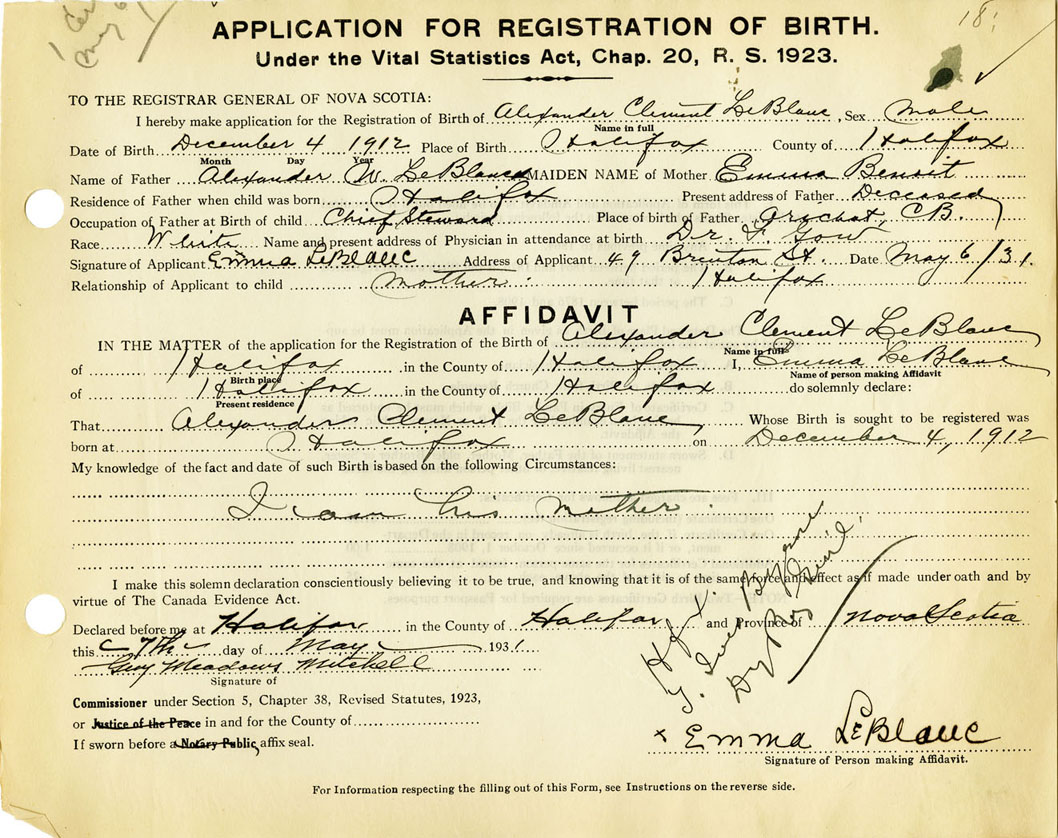 18;
APPLICATION FOR REGISTRATION OF BIRTH.
Under the Vital Statistics Act, Chap. 20, R. S. 1923.
TO THE REGISTRAR GENERAL OF NOVA SCOTIA:
I hereby make application for the Registration of Birth of Alexander Clement LeBlanc, Sex Male
Name in full
Date of Birth December 4 1912 Place of Birth Halifax County of Halifax
Month Day Year
Name of Father Alexander W. LeBlanc MAIDEN NAME of Mother Emma Benoit
Residence of Father when child was born Halifax Present address of Father Deceased
Occupation of Father at Birth of child Chief Steward Place of birth of Father Arichat, C.B.
Race White Name and present address of Physician in attendance at birth Dr. F. Gow
Signature of Applicant Emma LeBlanc Address of Applicant 49 Brenton St. Date May 6/31.
Relationship of Applicant to child Mother. Halifax
AFFIDAVIT
IN THE MATTER of the application for the Registration of the Birth of Alexander Clement LeBlanc
Name in full
of Halifax in the County of Halifax I, Emma LeBlanc
Birth place Name of person making Affidavit
of Halifax in the County of Halifax do solemnly declare:
Present residence
That Alexander Clement LeBlanc Whose Birth is sought to be registered was
born at Halifax on December 4, 1912
My knowledge of the fact and date of such Birth is based on the following Circumstances:
I am his mother.
I make this solemn declaration conscientiously believing it to be true, and knowing that it is of the same force and effect as if made under oath and by
virtue of The Canada Evidence Act.
Declared before me at Halifax in the County of Halifax and Province of Nova Scotia
this 7th day of May 1931
Guy Meadows Mitchell
Signature of
Commissioner under Section 5, Chapter 38, Revised Statutes, 1923,
or Justice of the Peace in and for the County of
If sworn before a Notary Public, affix seal.
x Emma LeBlanc
Signature of Person making Affidavit.
For Information respecting the filling out of this Form, see Instructions on the reverse side.